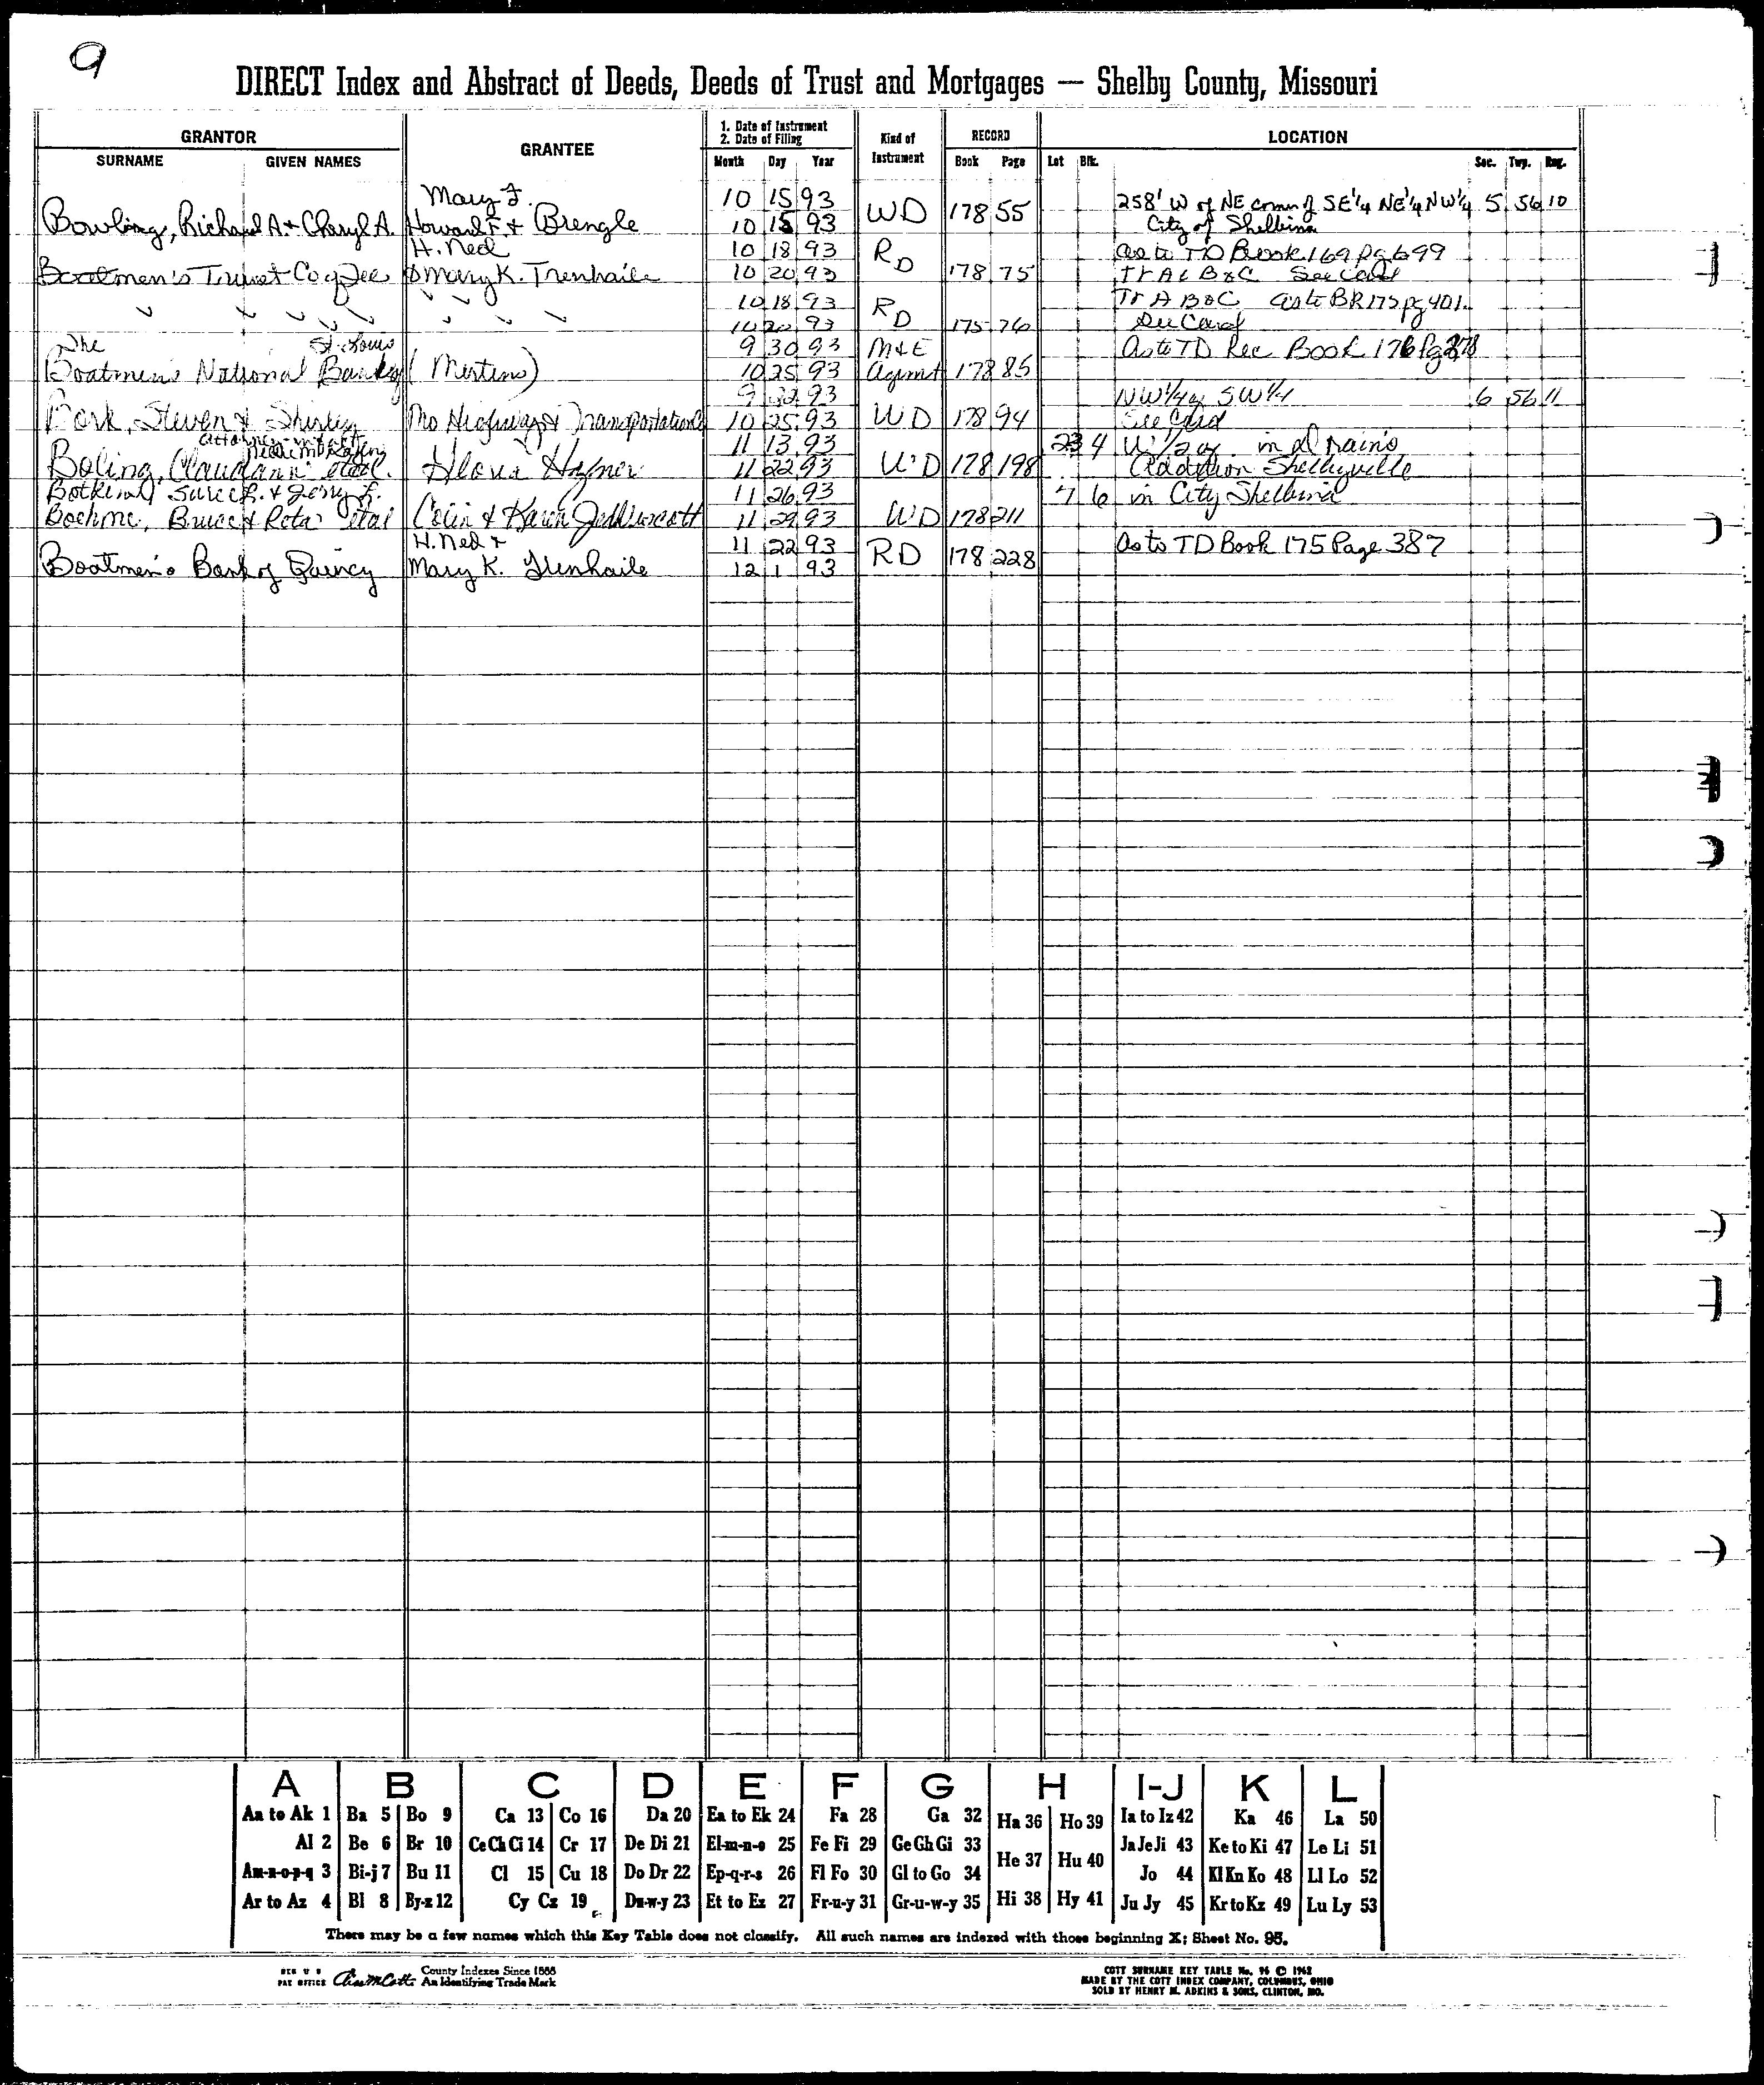 9
DIRECT Index and Abstract of Deeds, Deeds of Trust and Mortgages — Shelby County, Missouri
GRANTOR
SURNAME GIVEN NAMES
GRANTEE
1. Date of Instrument
2. Date of Filing
Month Day Year
Kind of
Instrument
RECORD
Book Page
LOCATION
Lot Blk. Sec. Twp. Rng.
Mary F. 10 15 93 258' W of NE corn of SE 1/4 NE 1/4 NW 1/4 5 56 10
Bowling, Richard A. + Cheryl A. Howard F. + Brengle 10 15 93 WD 178 55 City of Shelbina
H. Ned 10 18 93 RD as to TD Book 169 Pg 699
Boatmen's Trust Co of Mary K. Trenhaile 10 20 93 178 75 Tr A B & C See Card
10 18 93 RD Tr A B & C as to BR 175 pg 401
10 20 93 175 76 See Card
The St. Louis 9 30 93 M & E As to TD Rec Book 176 Pg
Boatmens National Bank of (Mertens) 10 25 93 Agmnt 178 85
9 93 NW 1/4 of SW 1/4 6 56 11
Bork, Steven & Shirley Mo Highway & Transportation 10 25 93 WD 178 94 See Card
attorney in fact 11 13 93 23 4 W 1/2 of in
Boling, Claudann etal. Hafner 11 22 93 WD 178 198 Addition Shelbyville
& Jerry L. 11 26 93 7 6 in City Shelbina
Boehme, Bruce & Reta etal Colin & Karen 11 29 93 WD 178 211
H. Ned + 11 22 93 As to TD Book 175 Page 387
Boatmen's Bank of Quincy Mary K. Trenhaile 12 1 93 RD 178 228
A B C D E F G H I-J K L
Aa to Ak 1 Ba 5 Bo 9 Ca 13 Co 16 Da 20 Ea to Ek 24 Fa 28 Ga 32 Ha 36 Ho 39 Ia to Iz 42 Ka 46 La 50
Al 2 Be 6 Br 10 Ce Ch Ci 14 Cr 17 De Di 21 El-m-n-o 25 Fe Fi 29 Ge Gh Gi 33 He 37 Hu 40 Ja Je Ji 43 Ke to Ki 47 Le Li 51
Am-n-o-p-q 3 Bi-j 7 Bu 11 Cl 15 Cu 18 Do Dr 22 Ep-q-r-s 26 Fl Fo 30 Gl to Go 34 Jo 44 Kl Kn Ko 48 Ll Lo 52
Ar to Az 4 Bl 8 By-z 12 Cy Cz 19 Du-w-y 23 Et to Ez 27 Fr-u-y 31 Gr-u-w-y 35 Hi 38 Hy 41 Ju Jy 45 Kr to Kz 49 Lu Ly 53
There may be a few names which this Key Table does not classify. All such names are indexed with those beginning X; Sheet No. 95.
REG U S
PAT OFFICE
County Indexes Since 1888
An Identifying Trade Mark
COTT SURNAME KEY TABLE No. 96 © 1962
MADE BY THE COTT INDEX COMPANY, COLUMBUS, OHIO
SOLD BY HENRY M. ADKINS & SONS, CLINTON, MO.